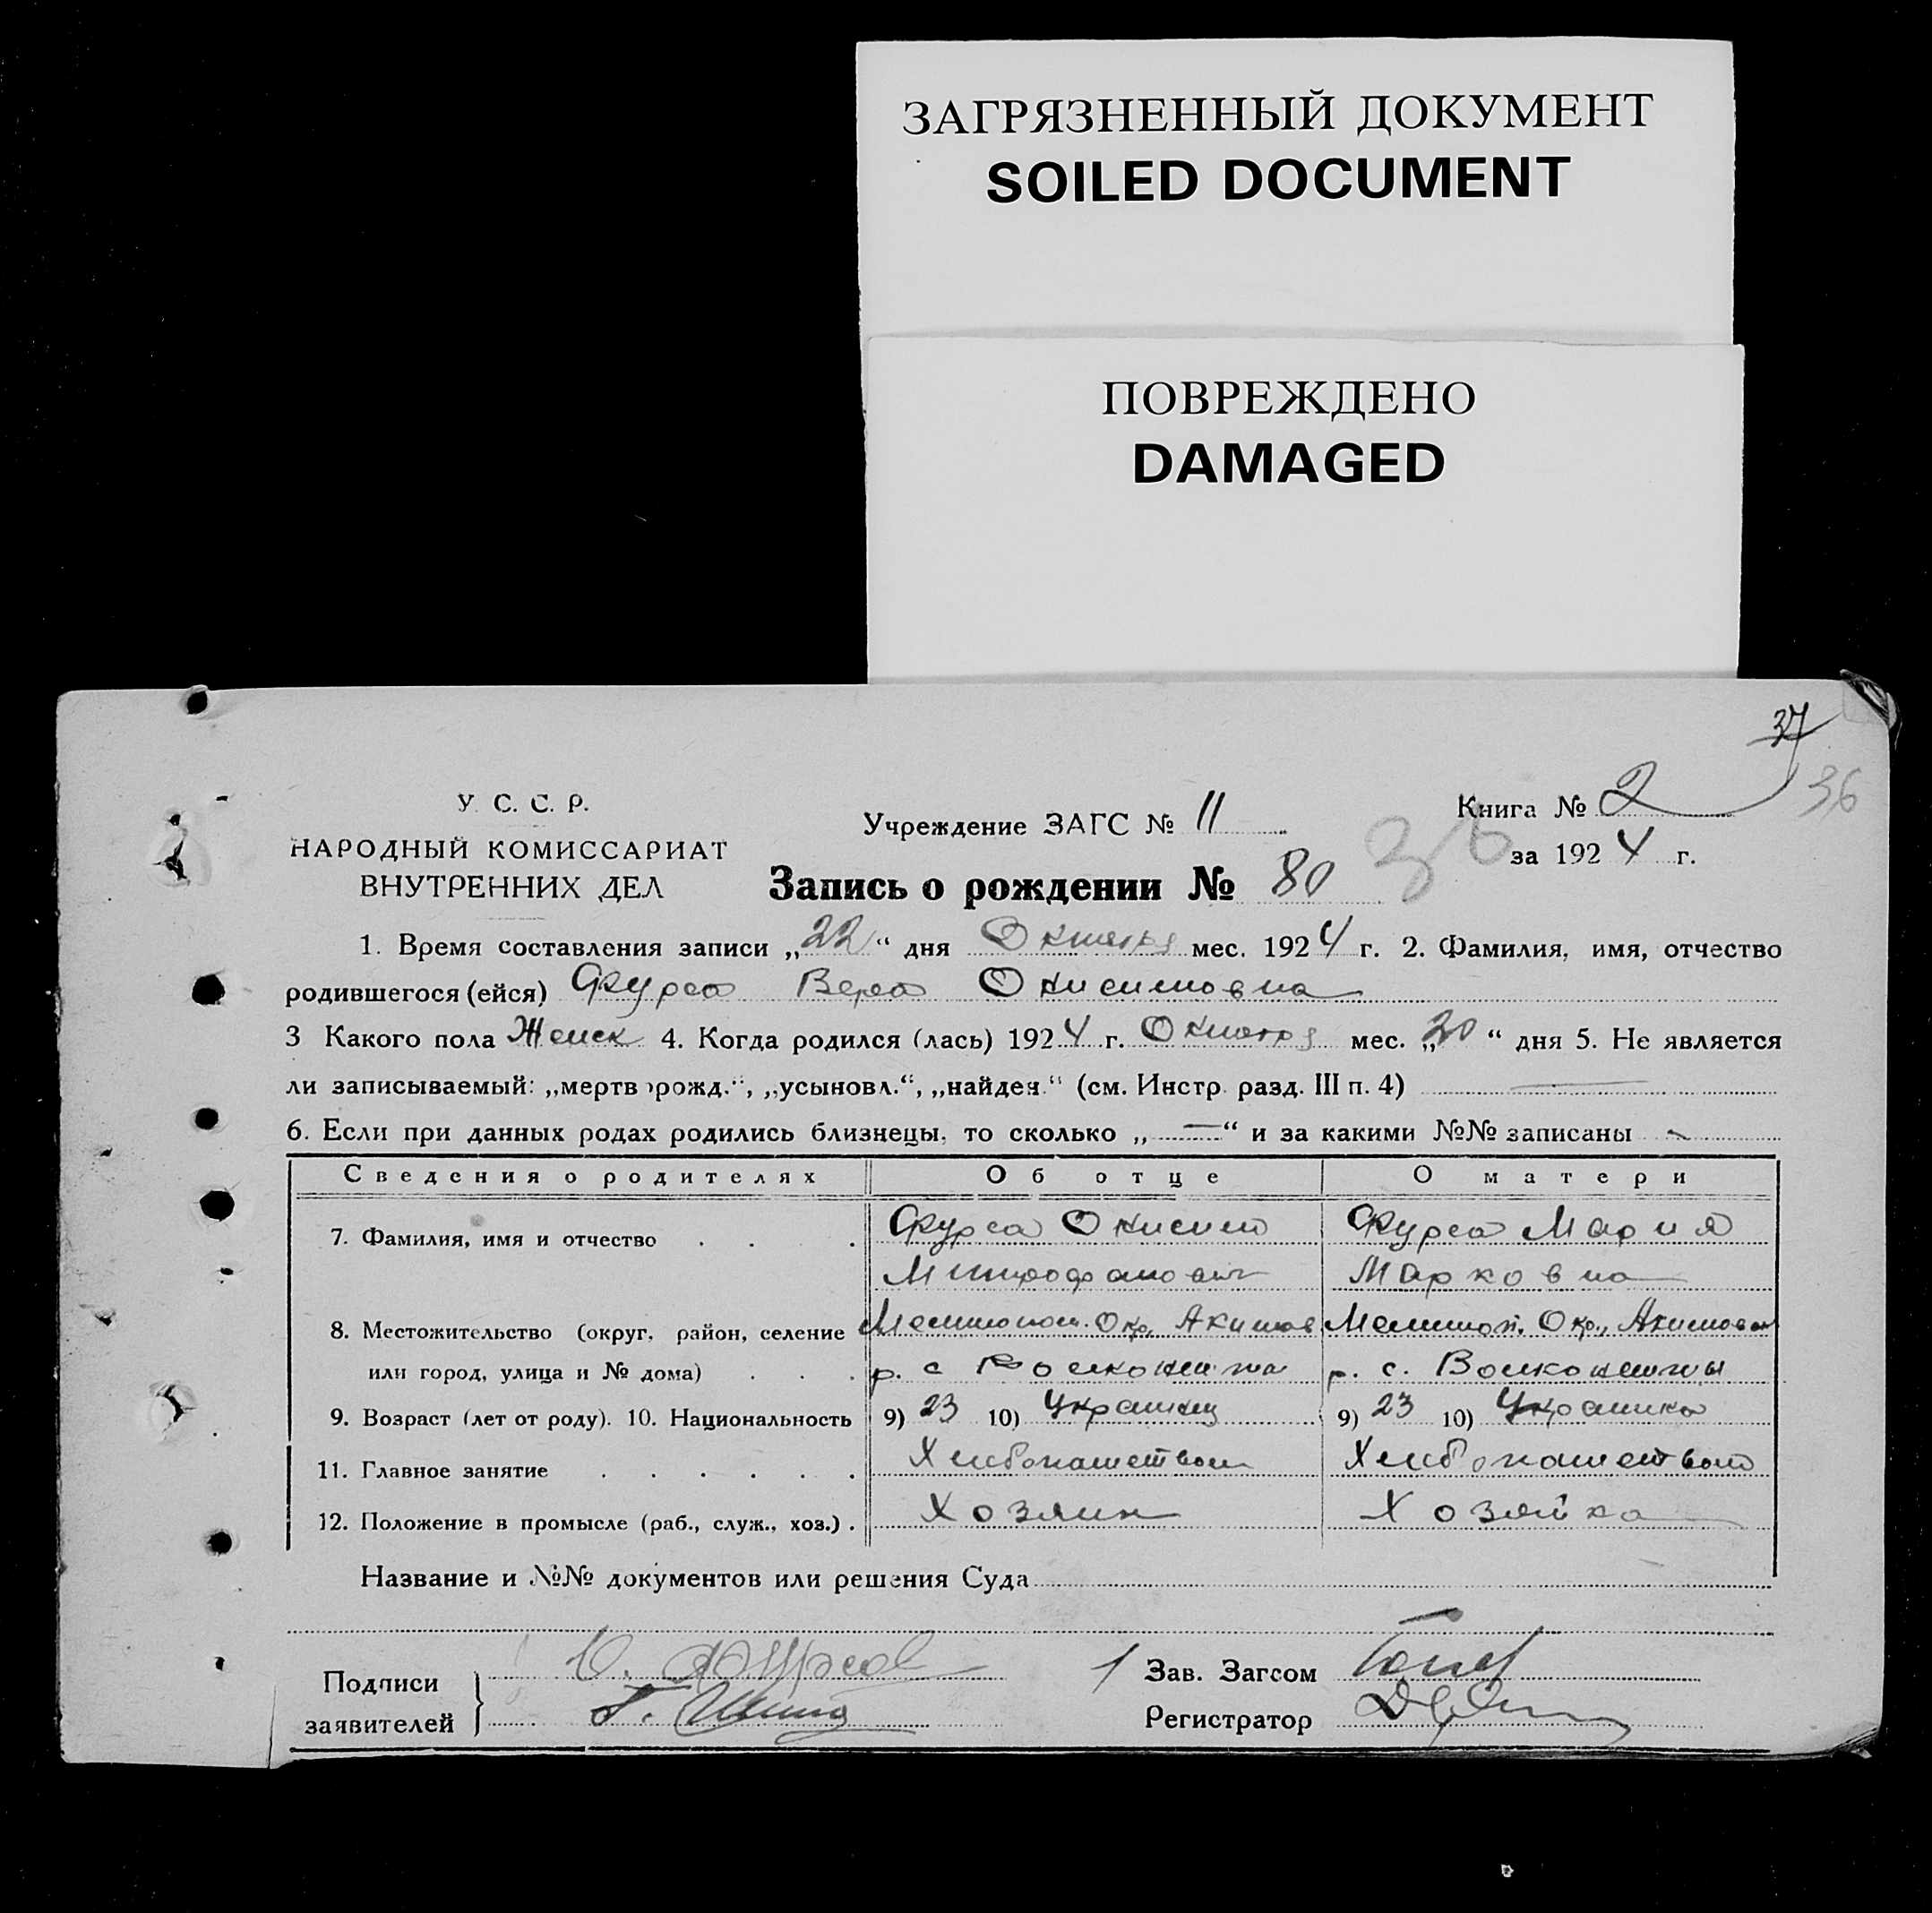 ЗАГРЯЗНЕННЫЙ ДОКУМЕНТ
SOILED DOCUMENT
ПОВРЕЖДЕНО
DAMAGED
37
36
У. С. С. Р.
НАРОДНЫЙ КОМИССАРИАТ
ВНУТРЕННИХ ДЕЛ
Учреждение ЗАГС № 11
Книга № 2
за 1924 г.
36
Запись о рождении № 80
1. Время составления записи „22“ дня Октября мес. 1924 г. 2. Фамилия, имя, отчество
родившегося (ейся) Фурса Вера Онисимовна
3 Какого пола Женск 4. Когда родился (лась) 1924 г. Октября мес. „20“ дня 5. Не является
ли записываемый: „мертворожд.“, „усыновл.“, „найден.“ (см. Инстр. разд. III п. 4) —
6. Если при данных родах родились близнецы, то сколько „—“ и за какими №№ записаны -
Сведения о родителях Об отце О матери
7. Фамилия, имя и отчество . . . Фурса Онисим Фурса Мария
Митрофанович Марковна
8. Местожительство (округ, район, селение Мелитопол. Окр., Акимов Мелитоп. Окр., Акимовск
или город, улица и № дома) . . . р. с р. с.
9. Возраст (лет от роду). 10. Национальность 9) 23 10) Украинец 9) 23 10) Украинка
11. Главное занятие . . . . . . Хлебопашеством Хлебопашество
12. Положение в промысле (раб., служ., хоз.) . Хозяин Хозяйка
Название и №№ документов или решения Суда
Подписи О. Фурса Зав. Загсом
заявителей Г. Регистратор